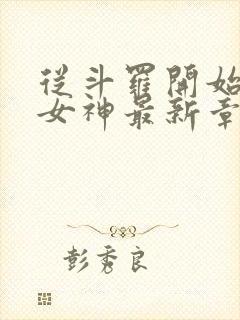 從斗羅開始
女神最新章
彭秀良